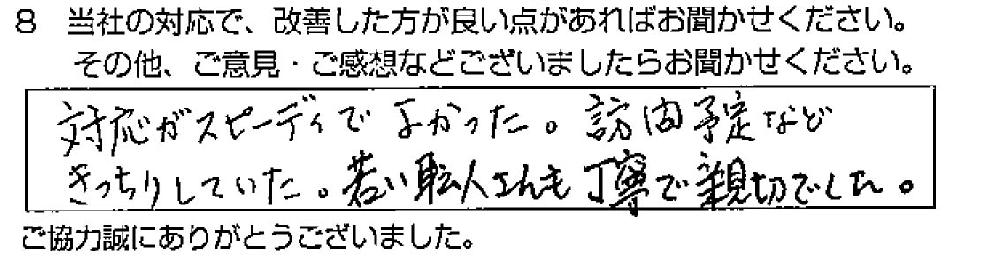 8 当社の対応で、改善した方が良い点があればお聞かせください。
その他、ご意見・ご感想などございましたらお聞かせください。
対応がスピーディでよかった。訪問予定など
きっちりしていた。若い職人さんも丁寧で親切でした。
ご協力誠にありがとうございました。